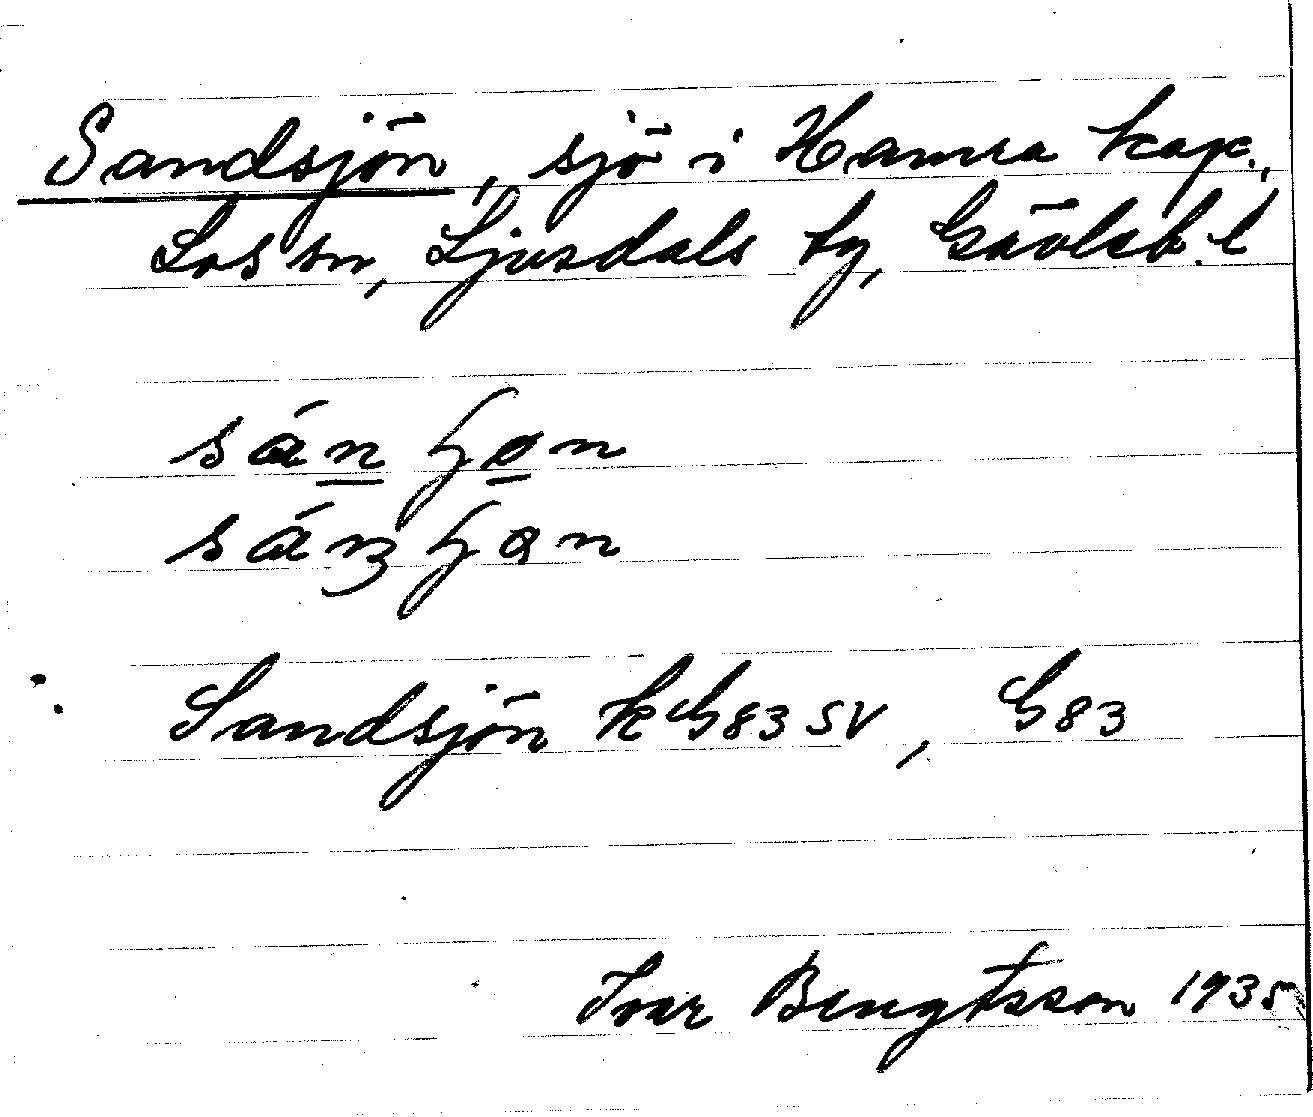 Sandsjön, sjö i Hamra kap.,
Los sn, Ljusdals tg, Gävleb. l
Sandsjön kG83SV, G83
Ivar Bengtsson 1935